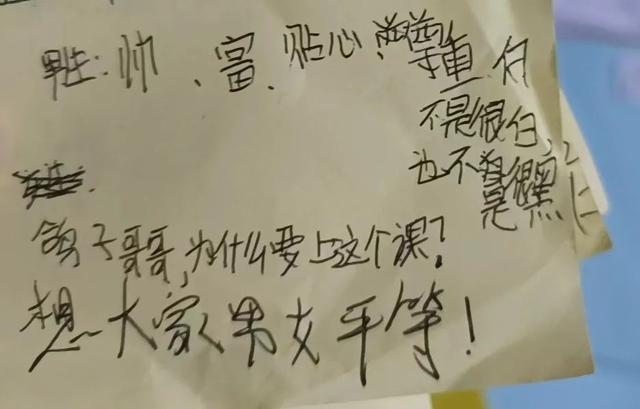 男生：帅、富、贴心、尊重、白
不是很白，
也不是很黑
鸽子哥哥，为什么要上这个课？
想大家男女平等！